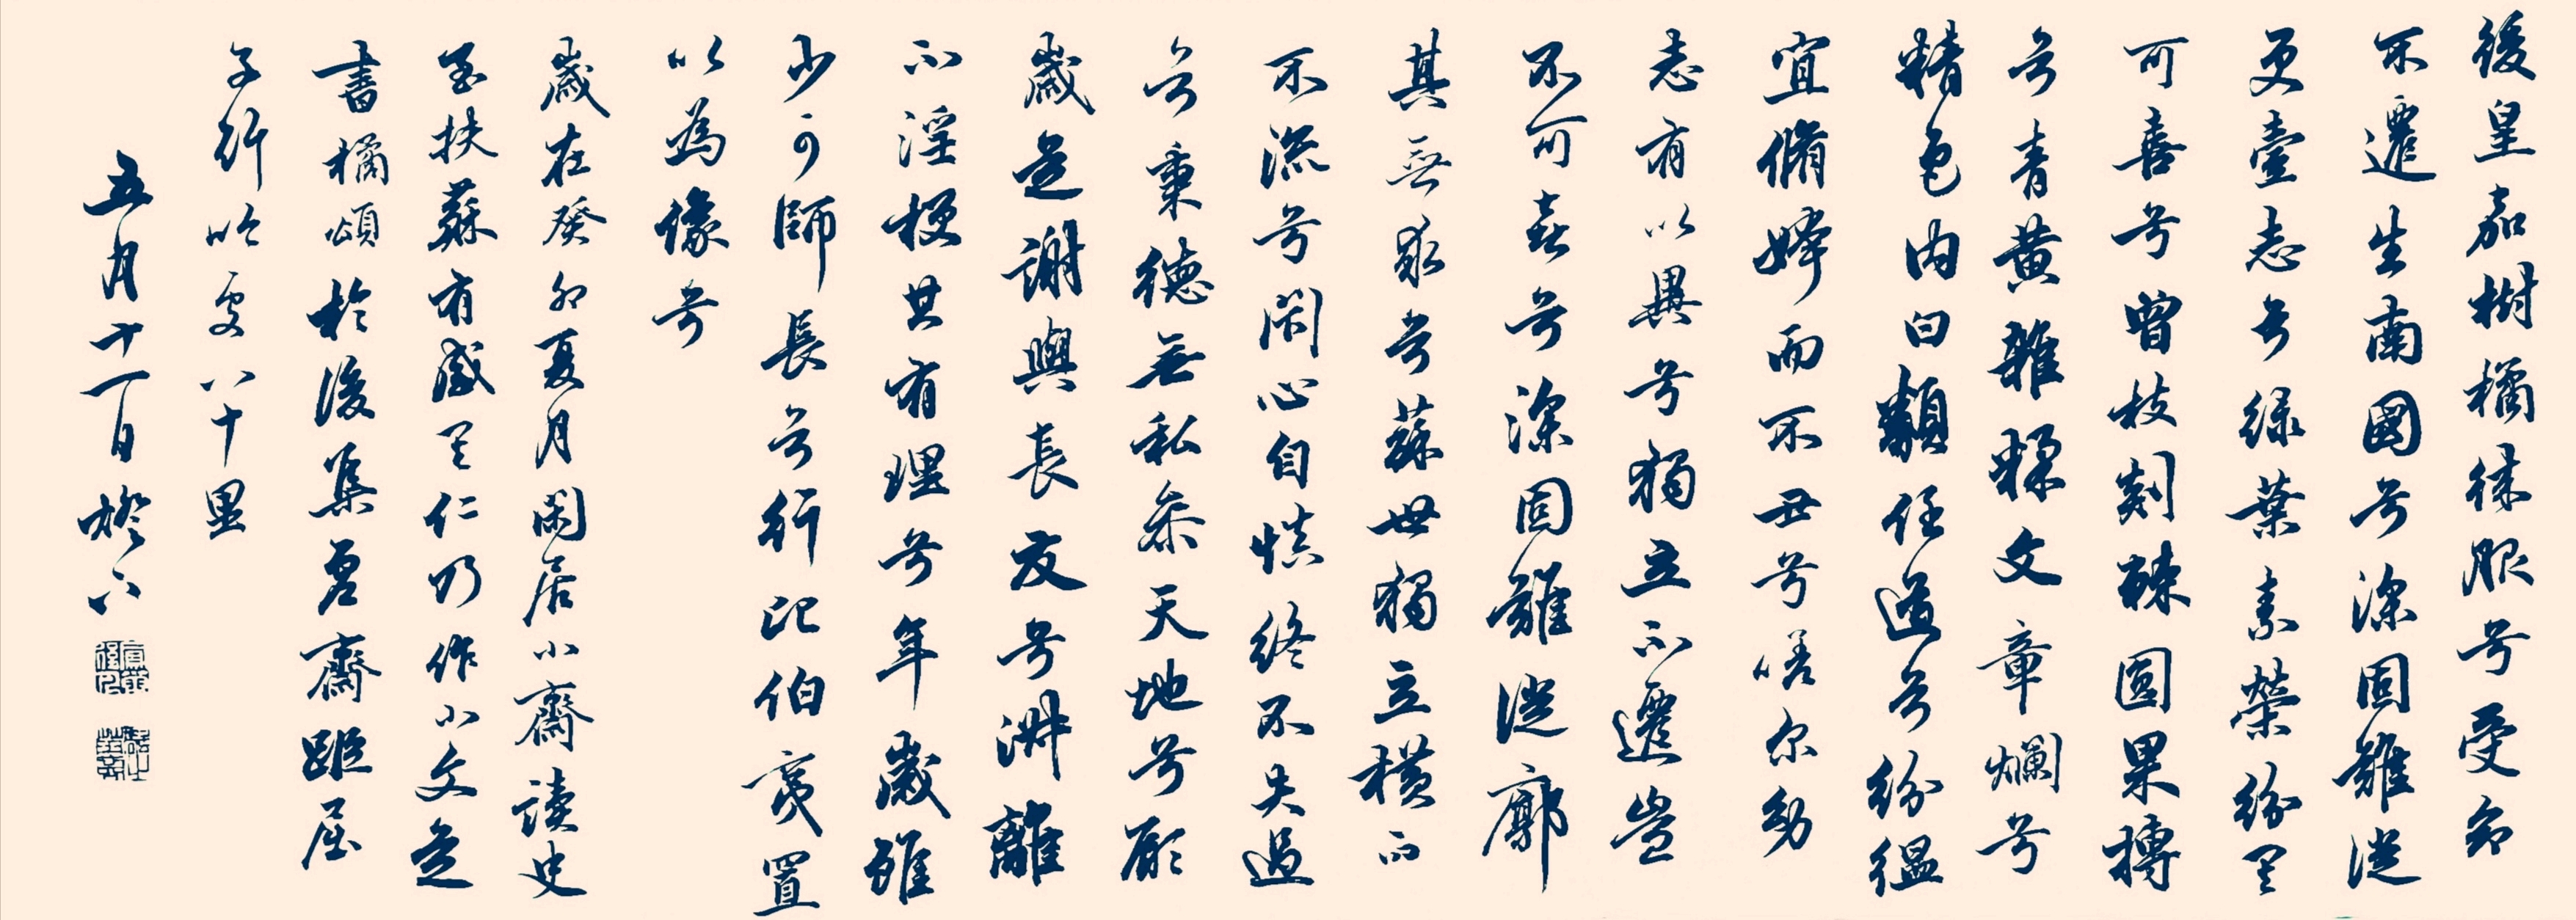 後皇嘉樹橘徠服兮受命
不遷生南國兮深固難從
更壹志兮綠葉素榮紛其
可喜兮曾枝剡棘圓果摶
兮青黃雜糅文章爛兮
精色內白類任道兮紛縕
宜脩姱而不丑兮嗟尔幼
志有以異兮獨立不遷豈
不可喜兮深固難從廓
其無求兮蘇世獨立橫而
不流兮閉心自慎終不失過
兮秉德無私參天地兮願
歲並謝與長友兮淑離
不淫梗其有理兮年歲雖
少可師長兮行比伯夷置
以為像兮
歲在癸卯夏月閑居小齋讀史
至扶蘇有感其仁乃作小文並
書橘頌於後集虛齋距屈
子行吟處八十里
五月十一日